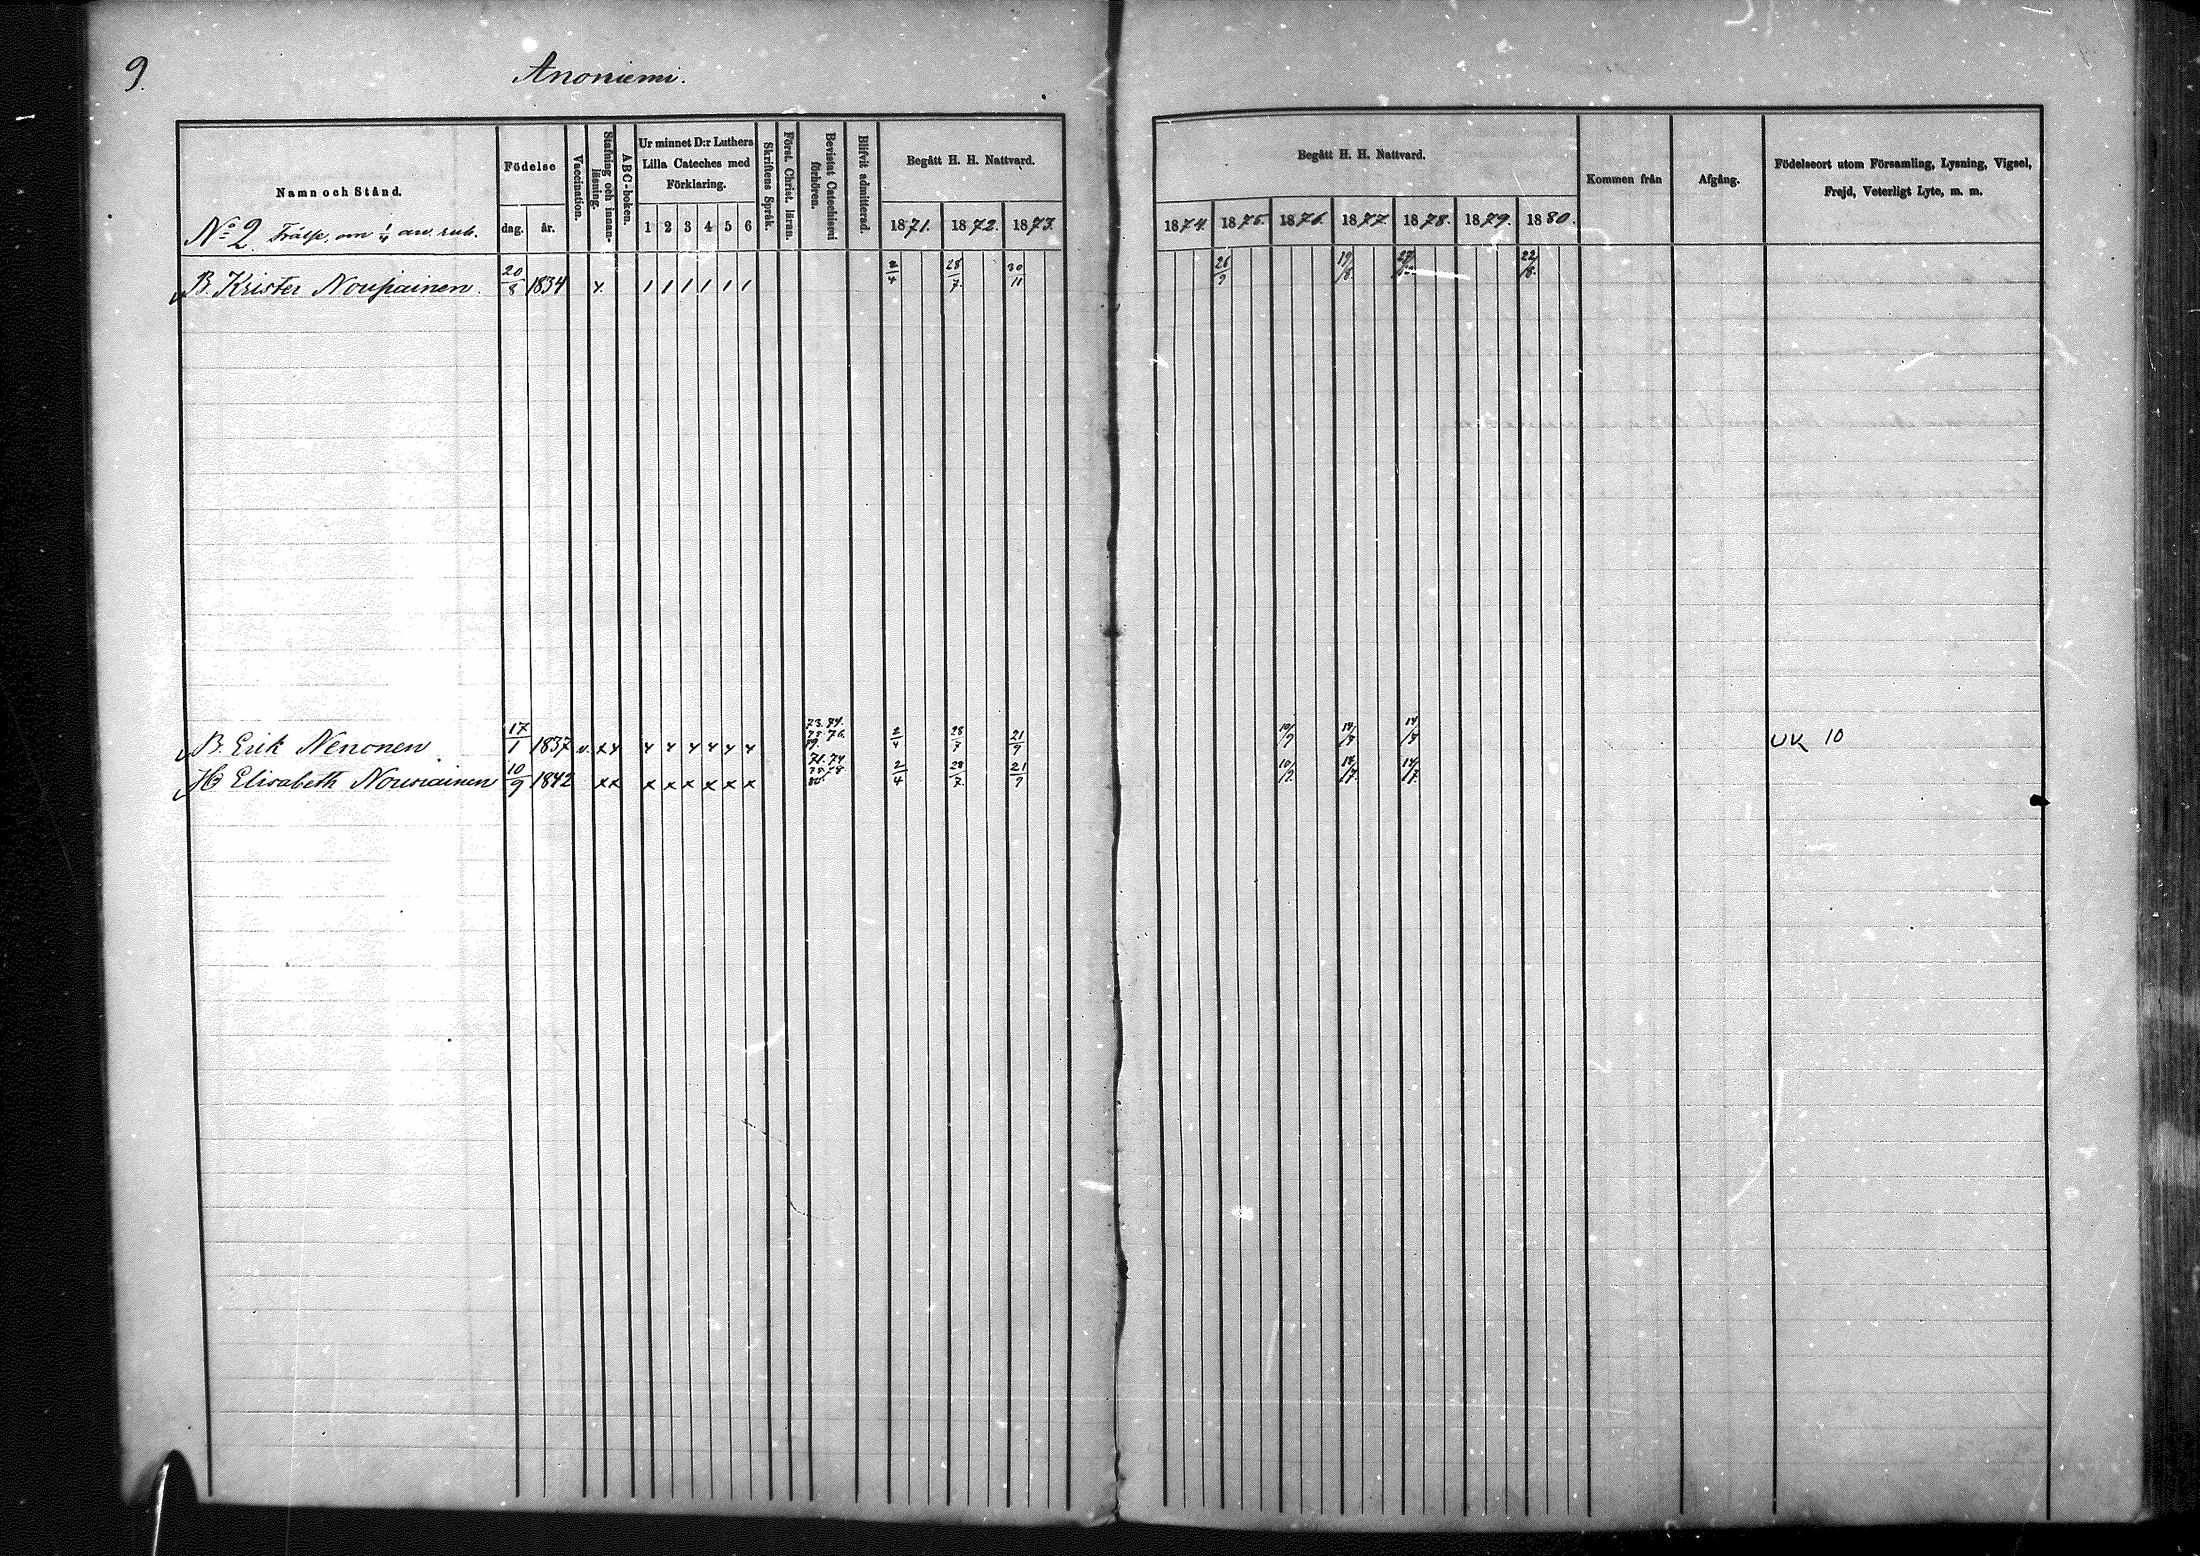 9.
Anoniemi.
Namn och Stånd.
Födelse
dag.
år.
Vaccination.
Stafning och innan-
läsning.
ABC-boken.
Ur minnet D:r Luthers
Lilla Cateches med
Förklaring.
1 2 3 4 5 6
Skriftens Språk.
Först. Christ. läran.
Bevistat Catechismi
förhören.
Blifvit admitterad.
Begått H. H. Nattvard.
1871. 1872. 1873.
Begått H. H. Nattvard.
1874. 1875. 1876. 1877. 1878. 1879. 1880.
Kommen från
Afgång.
Födelseort utom Församling, Lysning, Vigsel,
Frejd, Veterligt Lyte, m. m.
No 2 Frälse, om 1/4 av. rub.
B. Krister Nousiainen. 20/8 1834 x 1 1 1 1 1 1 28/7 30/11 26/9 19/8 22/8
B. Erik Nenonen 17/1 1837 v. x x x x x x x x 73. 74. 75. 76. 79. 2/4 28/7 21/9 10/9 UK 10
H Elisabeth Nousiainen 10/9 1842 x x x x x x x x 71. 74 75. 78 2/4 28/7 21/9 10/9